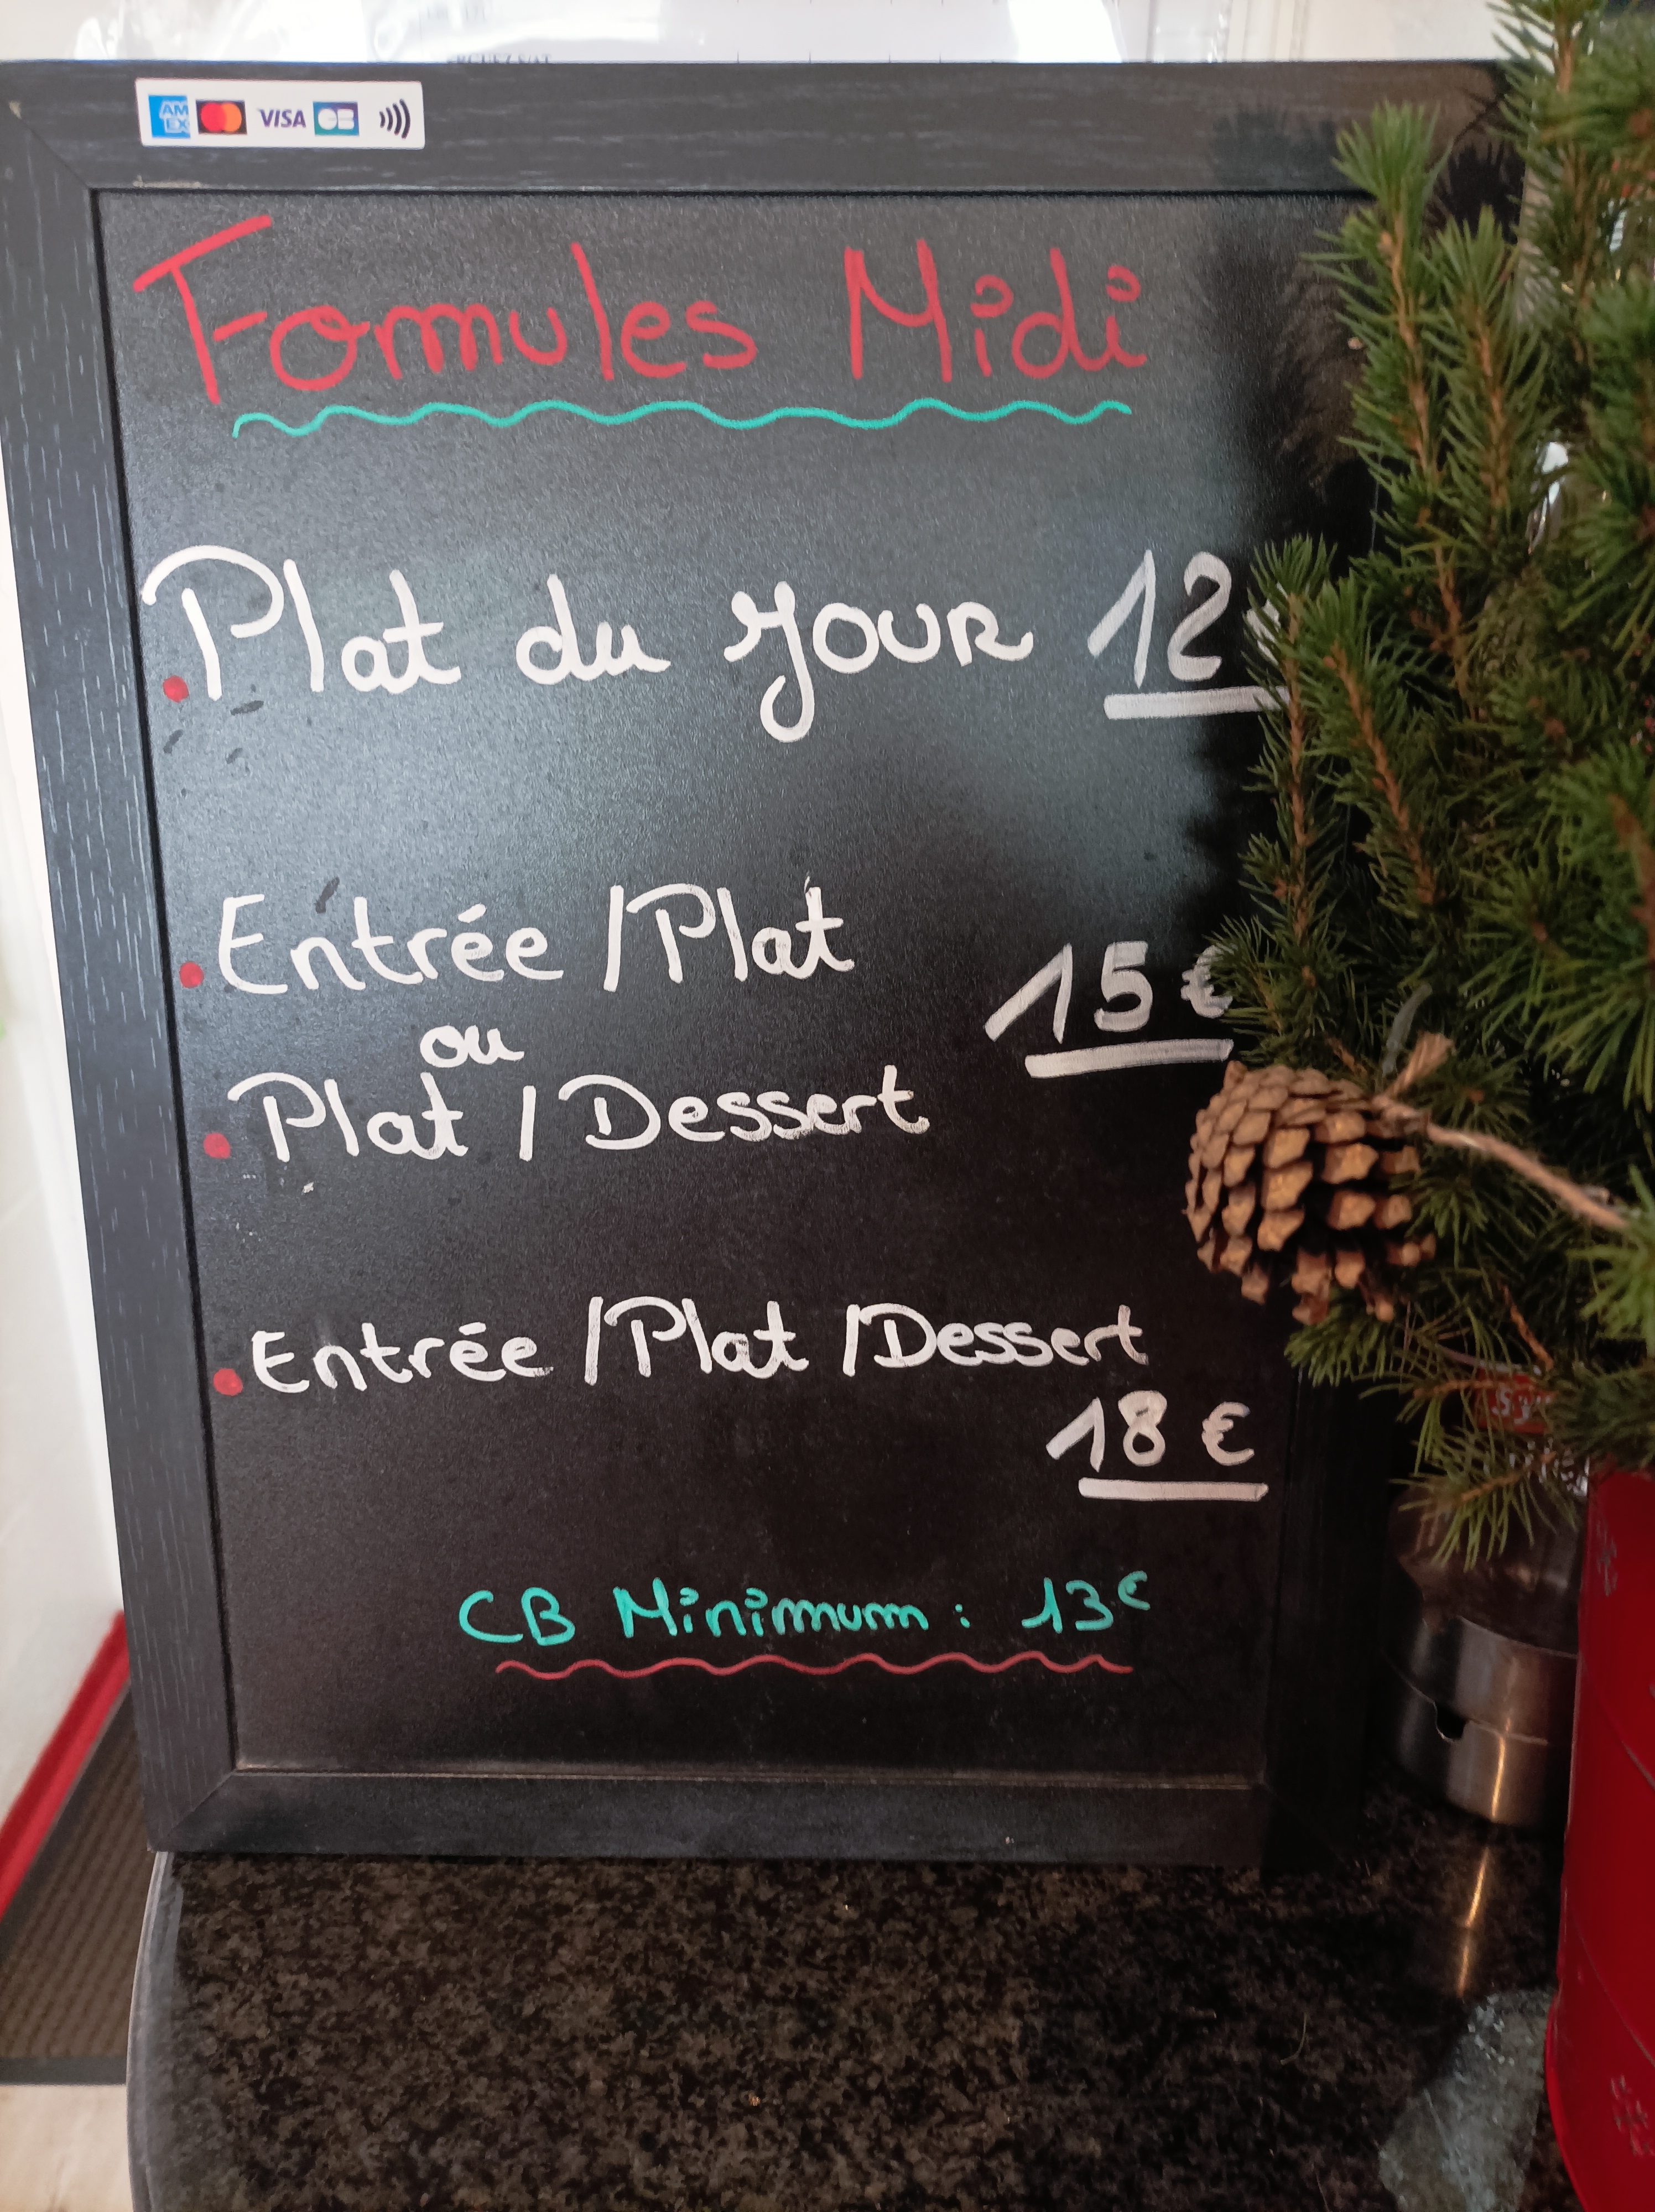 AM
EX
VISA
CB
Formules Midi
Plat du jour 12
Entrée / Plat
15€
ou
Plat / Dessert
Entrée / Plat / Dessert
18 €
CB Minimum : 13€